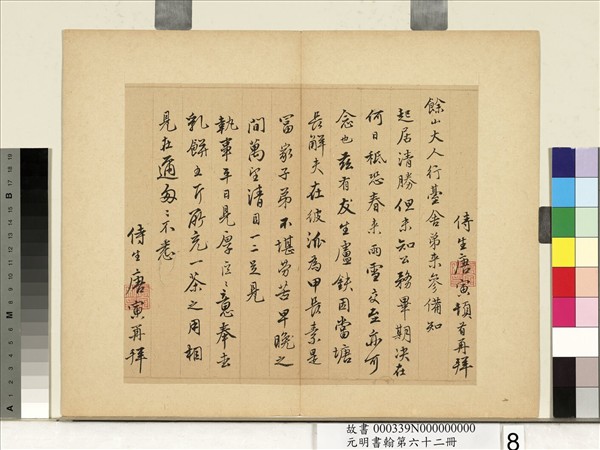 侍生唐寅頓首再拜
餘山大人行臺舍弟來參備知
起居清勝但未知公務畢期決在
何日秪恐春來雨雪交至亦可
念也茲有友生盧鈇因當塘
長解夫在彼派為甲長素是
富家子弟不堪勞苦早晚之
間萬望清目一二足見
執事平日見厚之意奉去
乳餅五斤所充一茶之用相
見在邇匆匆不悉
侍生唐寅再拜
故書 000339N000000000
元明書翰第六十二冊
8
A 1 2 3 4 5 6 M 8 9 10 11 12 13 14 15 B 17 18 19